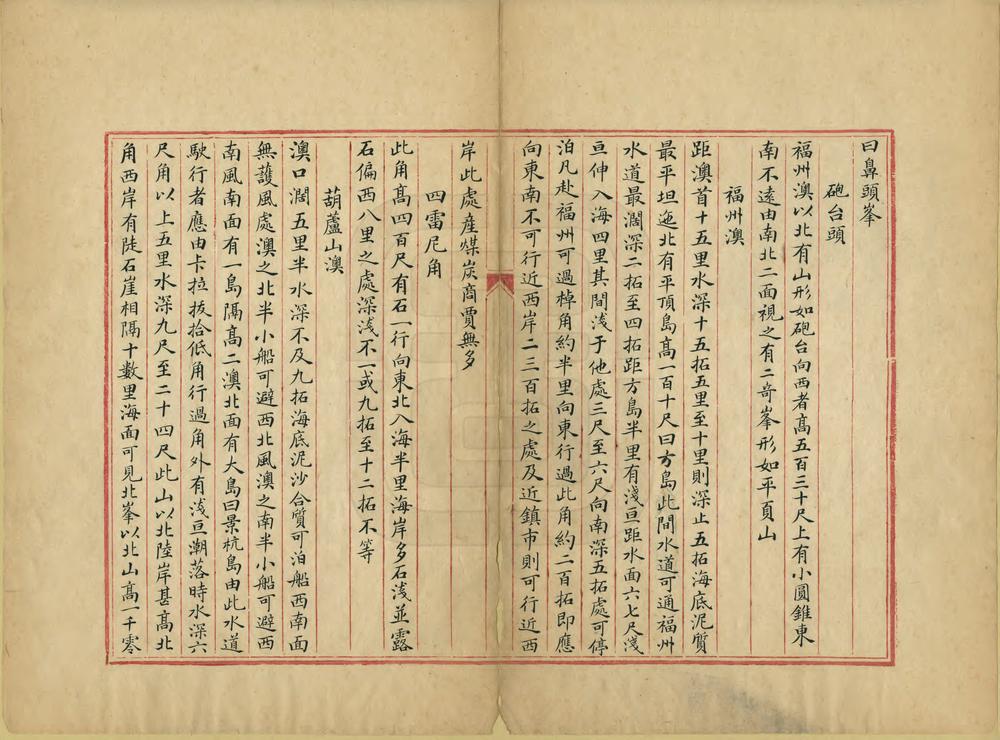 曰鼻頭峯
砲台頭
福州澳以北有山形如砲台向西者高五百三十尺上有小圓錐東
南不遠由南北二面視之有二奇峯形如平頁山
福州澳
距澳首十五里水深十五拓五里至十里則深止五拓海底泥質
最平坦迤北有平頂島高一百十尺曰方島此間水道可通福州
水道最濶深二拓至四拓距方島半里有淺亘距水面六七尺淺
亘伸入海四里其間淺于他處三尺至六尺向南深五拓處可停
泊凡赴福州可過棹角約半里向東行過此角約二百拓即應
向東南不可行近西岸二三百拓之處及近鎮市則可行近西
岸此處産煤炭商賈無多
四雷尼角
此角髙四百尺有石一行向東北入海半里海岸多石淺並露
石偏西八里之處深淺不一或九拓至十二拓不等
葫蘆山澳
澳口濶五里半水深不及九拓海底泥沙合質可泊船西南面
無護風處澳之北半小船可避西北風澳之南半小船可避西
南風南面有一島隔髙二澳北面有大島曰景杭島由此水道
駛行者應由卡拉拔拾低角行過角外有淺亘潮落時水深六
尺角以上五里水深九尺至二十四尺此山以北陸岸甚髙北
角西岸有陡石崖相隔十數里海面可見北峯以北山髙一千零